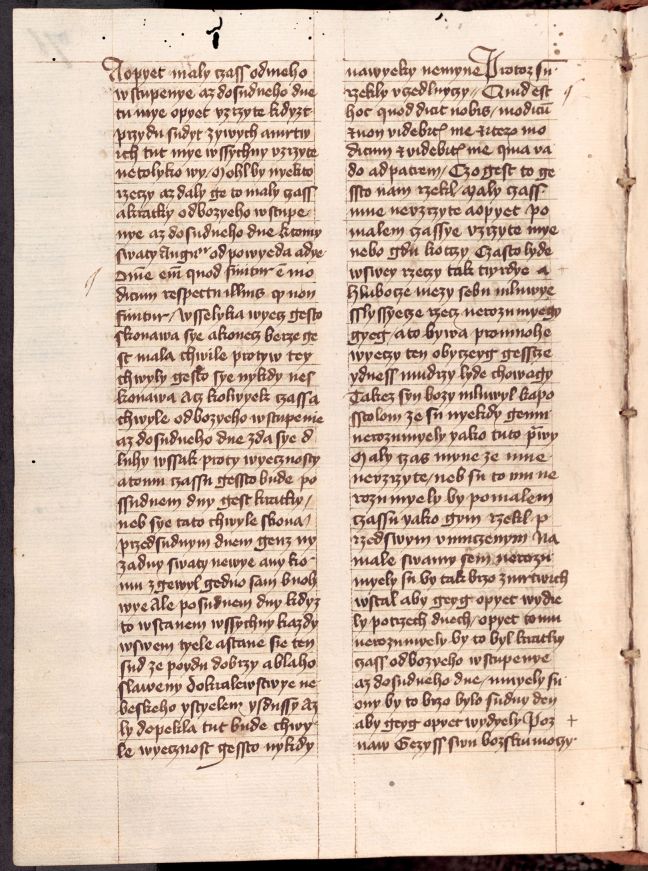 Aopyet maly czass odmeho
wstupenye az dosudneho dne
tu mye opyet vzrzyte kdyzt
przydu sudyt zywych amrtw
ich tut mye wssychny vzrzyte
netolyko wy / Mohl by nyekto
rzeczy az daly ge to maly czass
akratky odbozyeho wstupe
nye az dosudneho dne ktomu
swaty Augu9 odpowyeda adye
quod
dicum respectu illius
wsselyka wyecz gesto
skonawa sye akonecz berze ge
st mala chwile protyw tey
chwyly gesto sye nykdy nes
konawa Acz kolwyek czassa
chwyle odbozyeho wstupenie
az dosudneho dne zda sye d
luhy wssak proty wyecznosty
atomu czassu gessto bude po
ssudnem dny gest kratky /
neb sye tato chwyle skona /
przedsudnym dnem genz ny
zadny swaty newye any ko
mu zgewyl gedno sam buoh
wye Ale posudnem dny kdyz
to wstanem wssychny kazdy
wswem tyele astane sie ten
sud ze poydu dobrzy ablaho
slaweny dokralewstwye ne
beskeho ystyelem ydussy Az
ly dopekla tut bude chwy
le wyecznost gessto nykdy
nawyeky nemyne Protoz su
rzekly vczedlnyczy // Quid est
hoc quod dicit nobis / modicu
&non videbit me &itero mo
dicum &videbit me quia va
do ad patrem / Czo gest to ge
ssto nam rzekl Maly czass
mne nevzrzyte aopyet po
malem czassye vzrzyte mye
nebo gdu kotczy Czasto lyde
wswey rzeczy tak twrdye a
hluboce mezy sebu mluwye
sslyssyecze rzecz nerozumyegy
gyeg / ato bywa promnohe
wyeczy ten obyczyeg gessce
ydness mudrzy lyde chowagy
Takez syn bozy mluwyl kapo
sstolom ze su nyekdy gemu
nerozumyely yako tuto prwy
Maly czas myne ze mne
nevzrzyte / neb su to
rozumyely by pomalem
czassu yako gym rzekl p
rzedswym vmuczenym Na
male swamy sem nerozu
myely su by tak brzo zmrtwich
wstal aby geyg opyet wydie
ly potrzech dnech / opyet tomu
nerozumyely by to byl kratky
czass odbozyeho wstupenye
az dosudneho dne / mnyely su
ony by to brzo bylo sudny den
aby geyg opyet wydyely Poz
naw Gezyss swu bozsku moczy